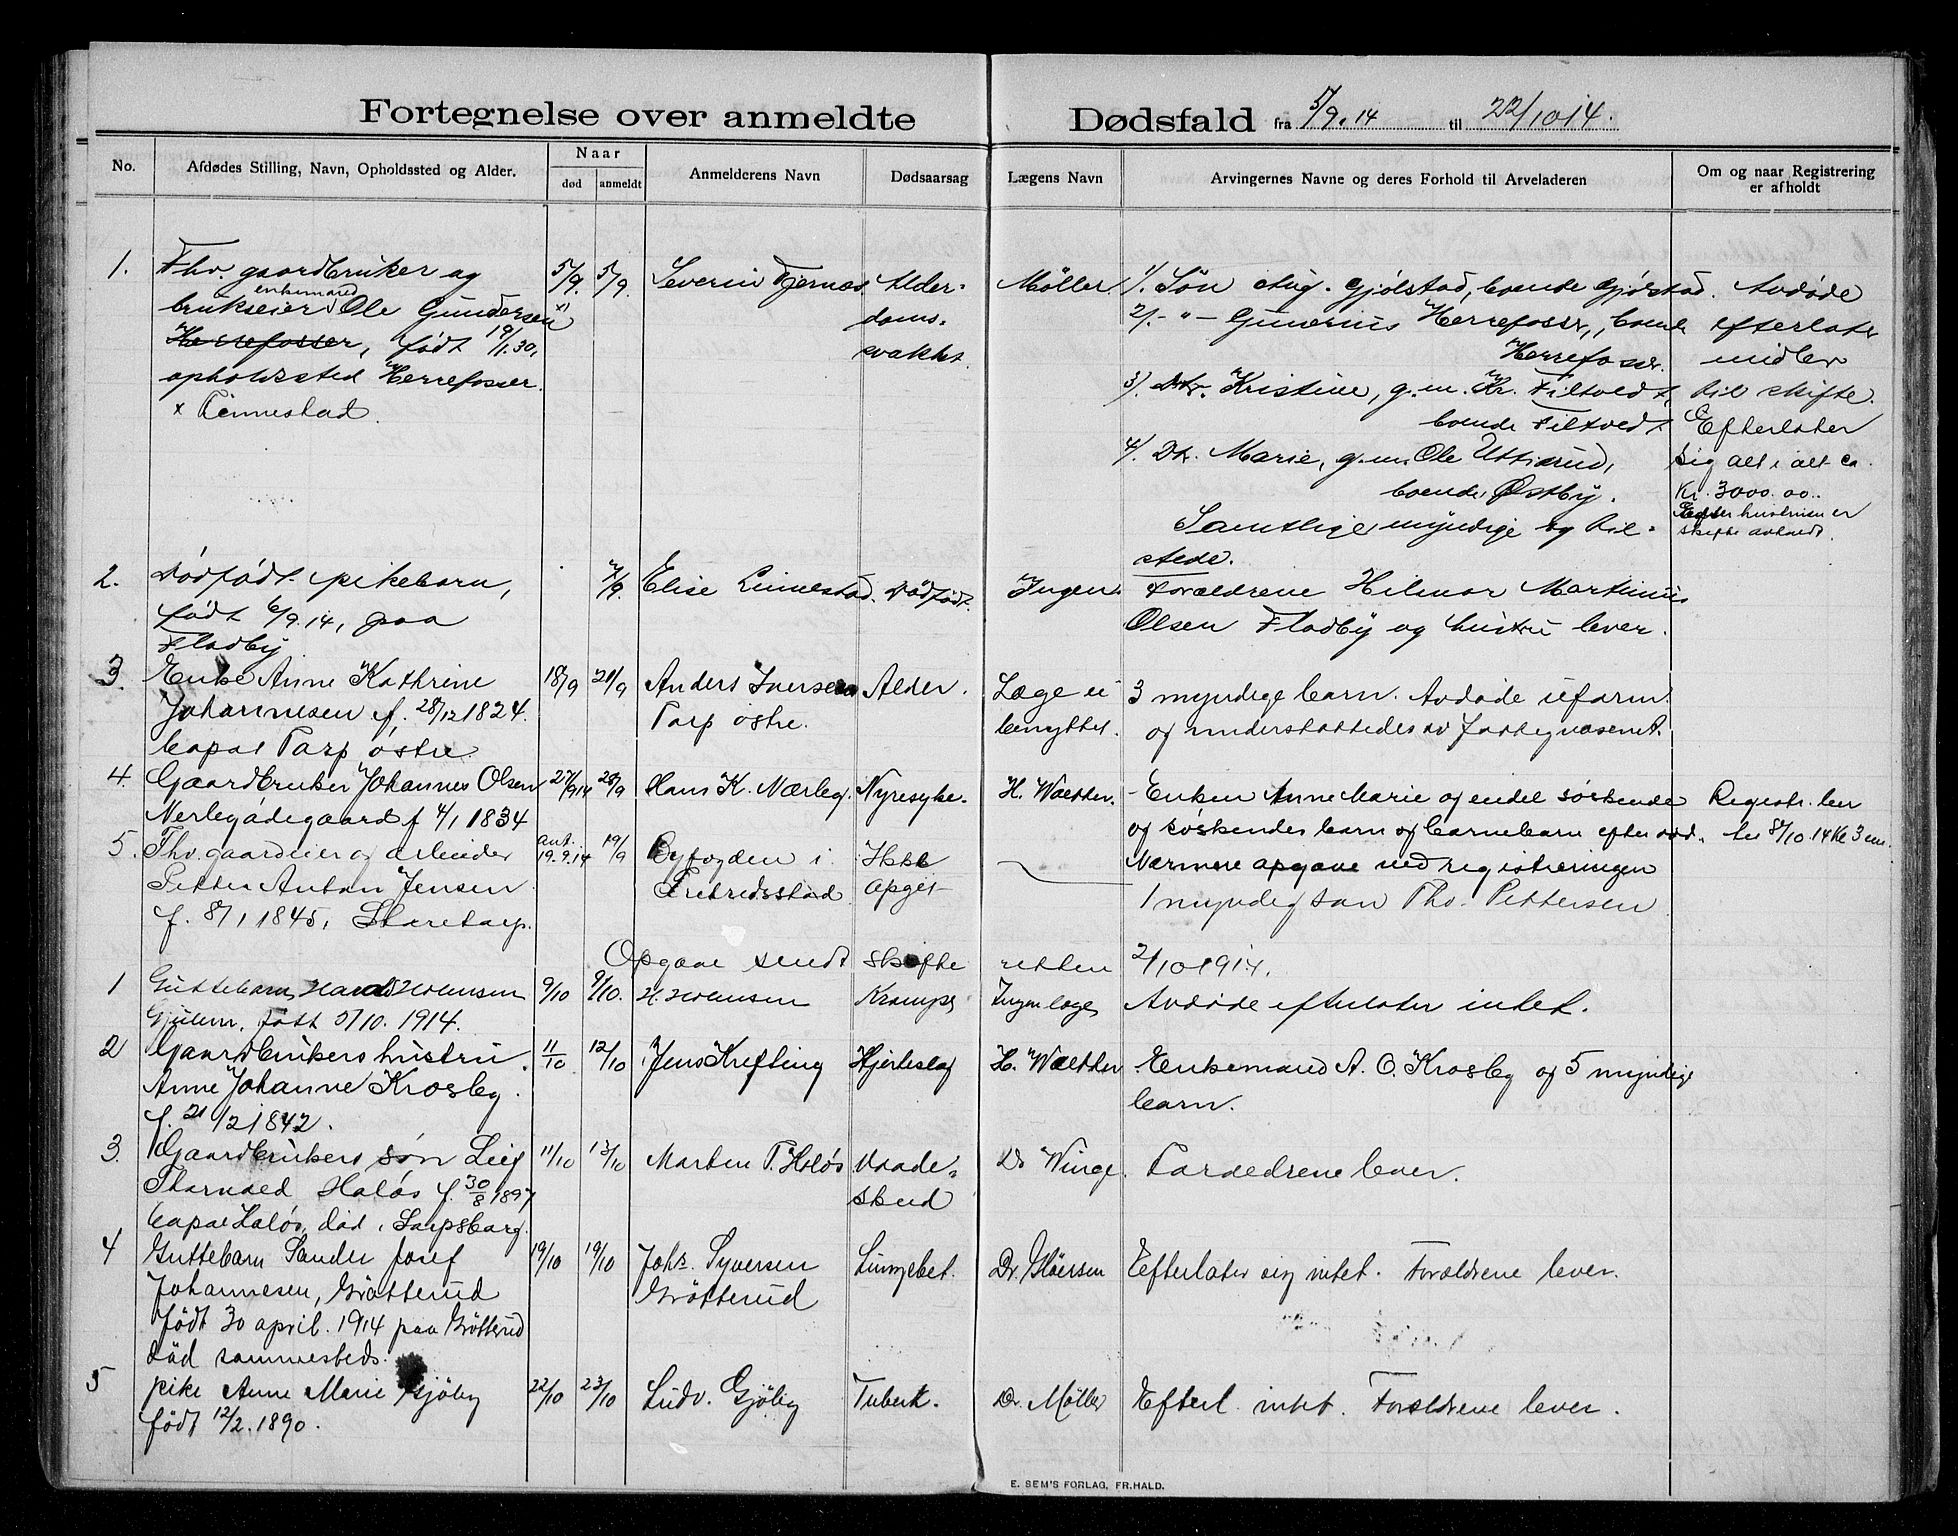 Fortegnelse over anmeldte Dødsfald fra 5/9.14 til 22/10 14.
No.
Afdødes Stilling, Navn, Opholdssted og Alder.
Naar
død
anmeldt
Anmelderens Navn
Dødsaarsag
Lægens Navn
Arvingernes Navne og deres Forhold til Arveladeren
Om og naar Registrering
er afholdt
1.
Fhv. gaardbruker og
enkemand
brukseier Ole Gundersen x)
Herrefosser, født 19/1.30,
opholdssted Herrefosser.
x Tennestad.
5/9.
5/9.
Severin Tjernæs
Alder-
doms-
svakhet.
Møller.
1). Søn Aug. Gjølstad, boende Gjølstad.
2). - " - Gunerius Herrefosser, boende
Herrefosser.
3). Dtr. Kristine, g. m. Kr. Filtvedt,
boende Filtvedt
4). Dt. Marie, g. m. Ole Uttierud,
boende Østby.
Samtlige myndige og til-
stede.
Avdøde
efterlater
midler
til skifte.
Efterlater
sig alt i alt ca.
Kr. 3000.00..
Efter hustruen er
skifte avholdt.
2.
Dødfødt pikebarn,
født 6/9.14, paa
Fladby
7/9.
Elise Linnestad.
Dødfødt.
Ingen.
Forældrene Hilmar Martinius
Olsen Fladby og hustru lever.
3.
Enke Anne Kathrine
Johannesen f. 28/12 1824.
bopæl Torp østre.
18/9
21/9
Anders Iversen
Torp østre.
Alder.
Læge ei
benyttet.
3 myndige barn. Avdøde uform.
og understøttedes av fattigvæsenet.
4.
Gaardbruker Johannes Olsen
Nerbyødegaard f 4/1 1834
27/9 14
28/9
Hans K. Nærby.
Nyresyke.
H. Walther.
- Enken Anne Marie og endel søskende
og søskendes barn og barnebarn efter død.
Nærmere opgave ved registreringen
Registr. ber
la 8/10.14 Kl 3 em.
5.
Fhv. gaardeier og arbeider
Petter Anton Jensen
f. 8/1 1845, Staretorp.
ant.
19.9.14
19/9
Byfogden i
Fredriksstad
Ikke
opgit
1 myndig søn Thv. Pettersen
Opgave sendt skifteretten 2/10 1914.
1
Guttebarn Harald Hoensen
Gjulem, født 5/10. 1914.
9/10
9/10.
H. Hoensen
Krampe
Ingen læge
Avdøde efterlater intet.
2
Gaardbrukers hustru
Anne Johanne Krosby.
f. 21/12 1842.
11/10
12/10
Jens Krefting
Hjerteslag
H. Walther
Enkemand A. O. Krosby og 5 myndige
barn.
3.
Gaardbrukers søn Leif
Thorvald Holøs f. 30/8 1897
bopæl Holøs, død i Sarpsborg.
11/10
13/10
Morten T. Holøs
Vaade-
skud
Dr Winge.
Forældrene lever.
4
Guttebarn Sander Josef
Johannesen, Grøtterud
født 30 april. 1914 paa Grøtterud
død sammesteds.
19/10
19/10
Johs. Syversen
Grøtterud
Lungebet.
Dr. Gløersen
Efterlater sig intet. Forældrene lever.
5
pike Anne Marie Gjølby
født 12/2. 1890.
22/10
23/10
Ludv. Gjølby
Tuberk.
Dr. Møller
Efterl. intet. Forældrene lever.
E. SEM'S FORLAG, FR.HALD.